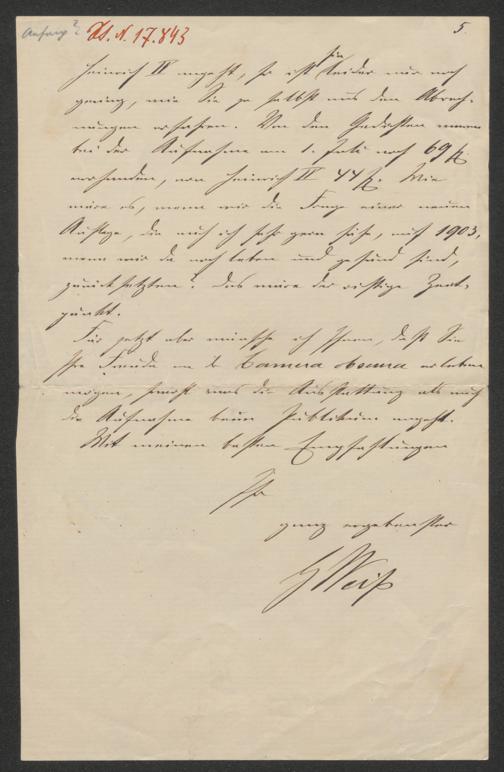 Anfang?
Hs. N. 17.843
5.
sie
Heinrich IV angeht, so ist leider nur noch
gering, wie Sie ja selbst aus den Abrech-
nungen ersehen. Von den Gedichten waren
bei der Aufnahme am 1. Juli noch 69 Ex
vorhanden, von Heinrich IV 44 Ex. Wie
wäre es, wenn wir die Frage einer neuen
Auflage, die auch ich sehr gern sähe, auf 1903,
wenn wir da noch leben und gesund sind,
zurücksetzten? Das wäre der richtige Zeit-
punkt.
Für jetzt aber wünsche ich Ihnen, daß Sie
Ihre Freude an der Camera obscura erleben
mögen, sowohl was die Ausstattung als auch
die Aufnahme beim Publikum angeht.
Mit meinen besten Empfehlungen
Ihr
ganz ergebenster
H Weiß